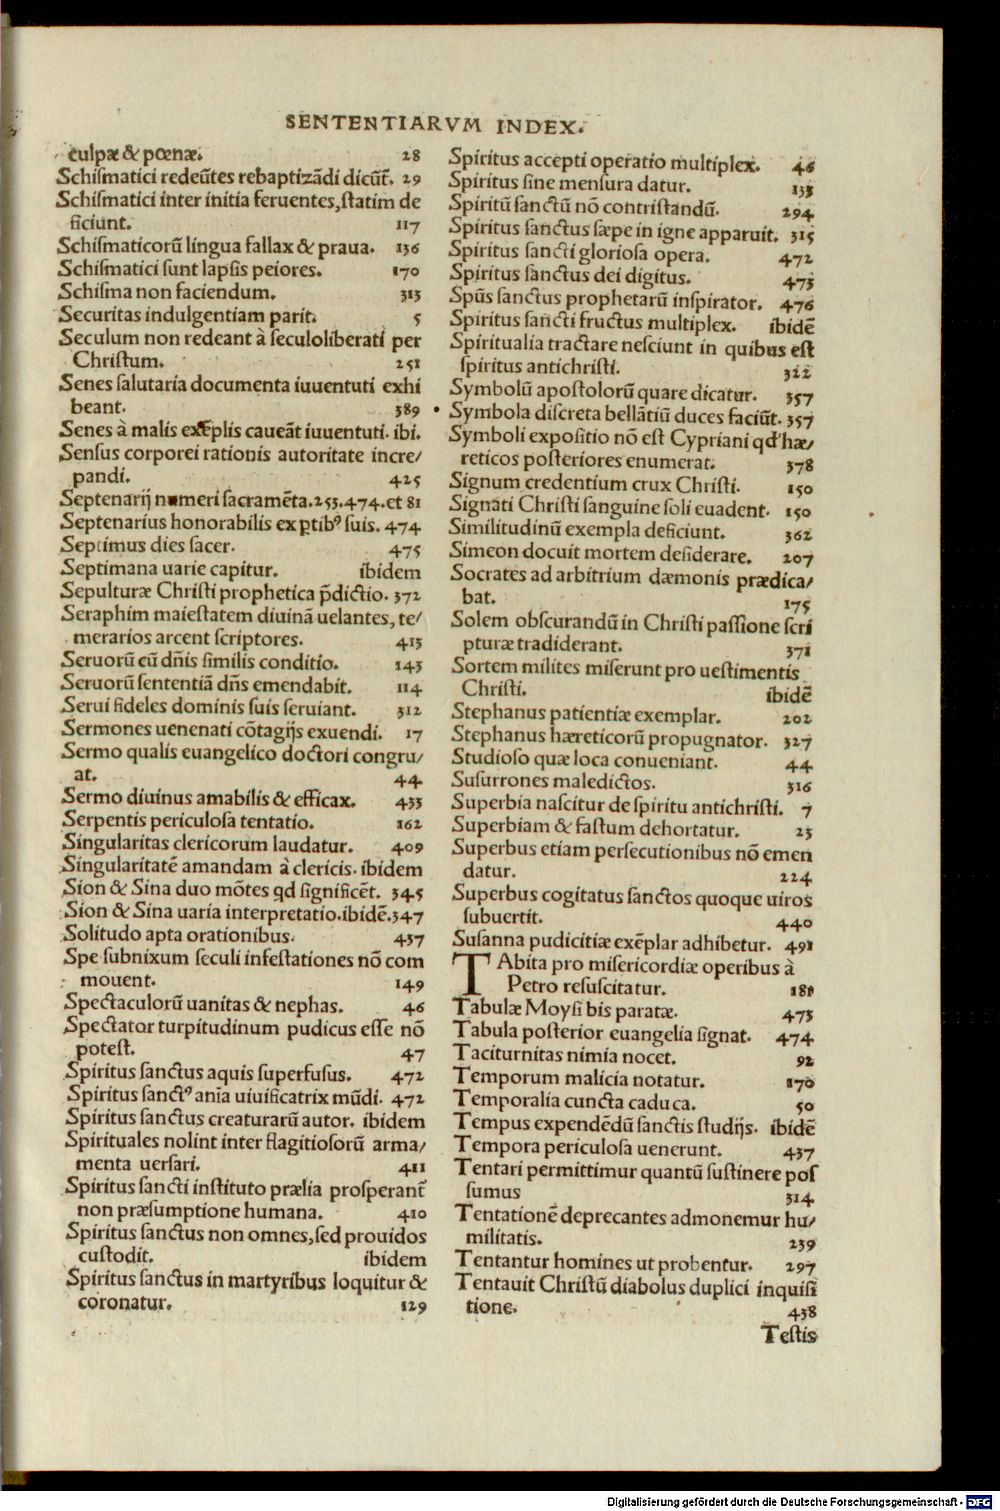 SENTENTIARVM INDEX.
culpæ & pœnæ. 28
Schiſmatici redeũtes rebaptizãdi dicũt̃. 29
Schiſmatici inter initia feruentes, ſtatim de
ficiunt. 117
Schiſmaticorũ lingua fallax & praua. 136
Schiſmatici ſunt lapſis peiores. 170
Schiſma non faciendum. 313
Securitas indulgentiam parit. 5
Seculum non redeant à ſeculo liberati per
Chriſtum. 251
Senes ſalutaria documenta iuuentuti exhi
beant. 389
Senes à malis exẽplis caueãt iuuentuti. ibi.
Senſus corporei rationis autoritate incre/
pandi. 425
Septenarij numeri ſacramẽta. 253. 474. et 81
Septenarius honorabilis ex ꝑtibꝰ ſuis. 474
Septimus dies ſacer. 475
Septimana uarie capitur. ibidem
Sepulturæ Chriſti prophetica p̃dictio. 372
Seraphim maieſtatem diuinã uelantes, te/
merarios arcent ſcriptores. 413
Seruorũ cũ dñis ſimilis conditio. 143
Seruorũ ſententiã dñs emendabit. 114
Serui fideles dominis ſuis ſeruiant. 312
Sermones uenenati cõtagijs exuendi. 17
Sermo qualis euangelico doctori congru/
at. 44
Sermo diuinus amabilis & efficax. 433
Serpentis periculoſa tentatio. 162
Singularitas clericorum laudatur. 409
Singularitatẽ amandam à clericis. ibidem
Sion & Sina duo mõtes qd ſignificẽt. 345
Sion & Sina uaria interpretatio. ibidẽ. 347
Solitudo apta orationibus. 437
Spe ſubnixum ſeculi infeſtationes nõ com
mouent. 149
Spectaculorũ uanitas & nephas. 46
Spectator turpitudinum pudicus eſſe nõ
poteſt. 47
Spiritus ſanctus aquis ſuperfuſus. 472
Spiritus ſanctꝰ anĩa uiuificatrix mũdi. 472
Spiritus ſanctus creaturarũ autor. ibidem
Spirituales nolint inter flagitioſorũ arma/
menta uerſari. 411
Spiritus ſancti inſtituto prælia proſperant̃
non præſumptione humana. 410
Spiritus ſanctus non omnes, ſed prouidos
cuſtodit. ibidem
Spiritus ſanctus in martyribus loquitur &
coronatur. 129
Spiritus accepti operatio multiplex. 46
Spiritus ſine menſura datur. 133
Spiritũ ſanctũ nõ contriſtandũ. 294
Spiritus ſanctus ſæpe in igne apparuit. 315
Spiritus ſancti glorioſa opera. 472
Spiritus ſanctus dei digitus. 473
Spũs ſanctus prophetarũ inſpirator. 476
Spiritus ſancti fructus multiplex. ibidẽ
Spiritualia tractare neſciunt in quibus eſt
ſpiritus antichriſti. 322
Symbolũ apoſtolorũ quare dicatur. 357
Symbola diſcreta bellãtiũ duces faciũt. 357
Symboli expoſitio nõ eſt Cypriani qd' hæ/
reticos poſteriores enumerat. 378
Signum credentium crux Chriſti. 150
Signati Chriſti ſanguine ſoli euadent. 150
Similitudinũ exempla deficiunt. 362
Simeon docuit mortem deſiderare. 207
Socrates ad arbitrium dæmonis prædica/
bat. 175
Solem obſcurandũ in Chriſti paſſione ſcri
pturæ tradiderant. 371
Sortem milites miſerunt pro ueſtimentis
Chriſti. ibidẽ
Stephanus patientiæ exemplar. 202
Stephanus hæreticorũ propugnator. 327
Studioſo quæ loca conueniant. 44
Suſurrones maledictos. 316
Superbia naſcitur de ſpiritu antichriſti. 7
Superbiam & faſtum dehortatur. 23
Superbus etiam perſecutionibus nõ emen
datur. 224
Superbus cogitatus ſanctos quoque uiros
ſubuertit. 440
Suſanna pudicitiæ exẽplar adhibetur. 491
TAbita pro miſericordiæ operibus à
Petro reſuſcitatur. 181
Tabulæ Moyſi bis paratæ. 473
Tabula poſterior euangelia ſignat. 474
Taciturnitas nimia nocet. 92
Temporum malicia notatur. 170
Temporalia cuncta caduca. 50
Tempus expendẽdũ ſanctis ſtudijs. ibidẽ
Tempora periculoſa uenerunt. 437
Tentari permittimur quantũ ſuſtinere poſ
ſumus 314
Tentationẽ deprecantes admonemur hu/
militatis. 239
Tentantur homines ut probentur. 297
Tentauit Chriſtũ diabolus duplici inquiſi
tione. 438
Teſtis
Digitalisierung gefördert durch die Deutsche Forschungsgemeinschaft - DFG